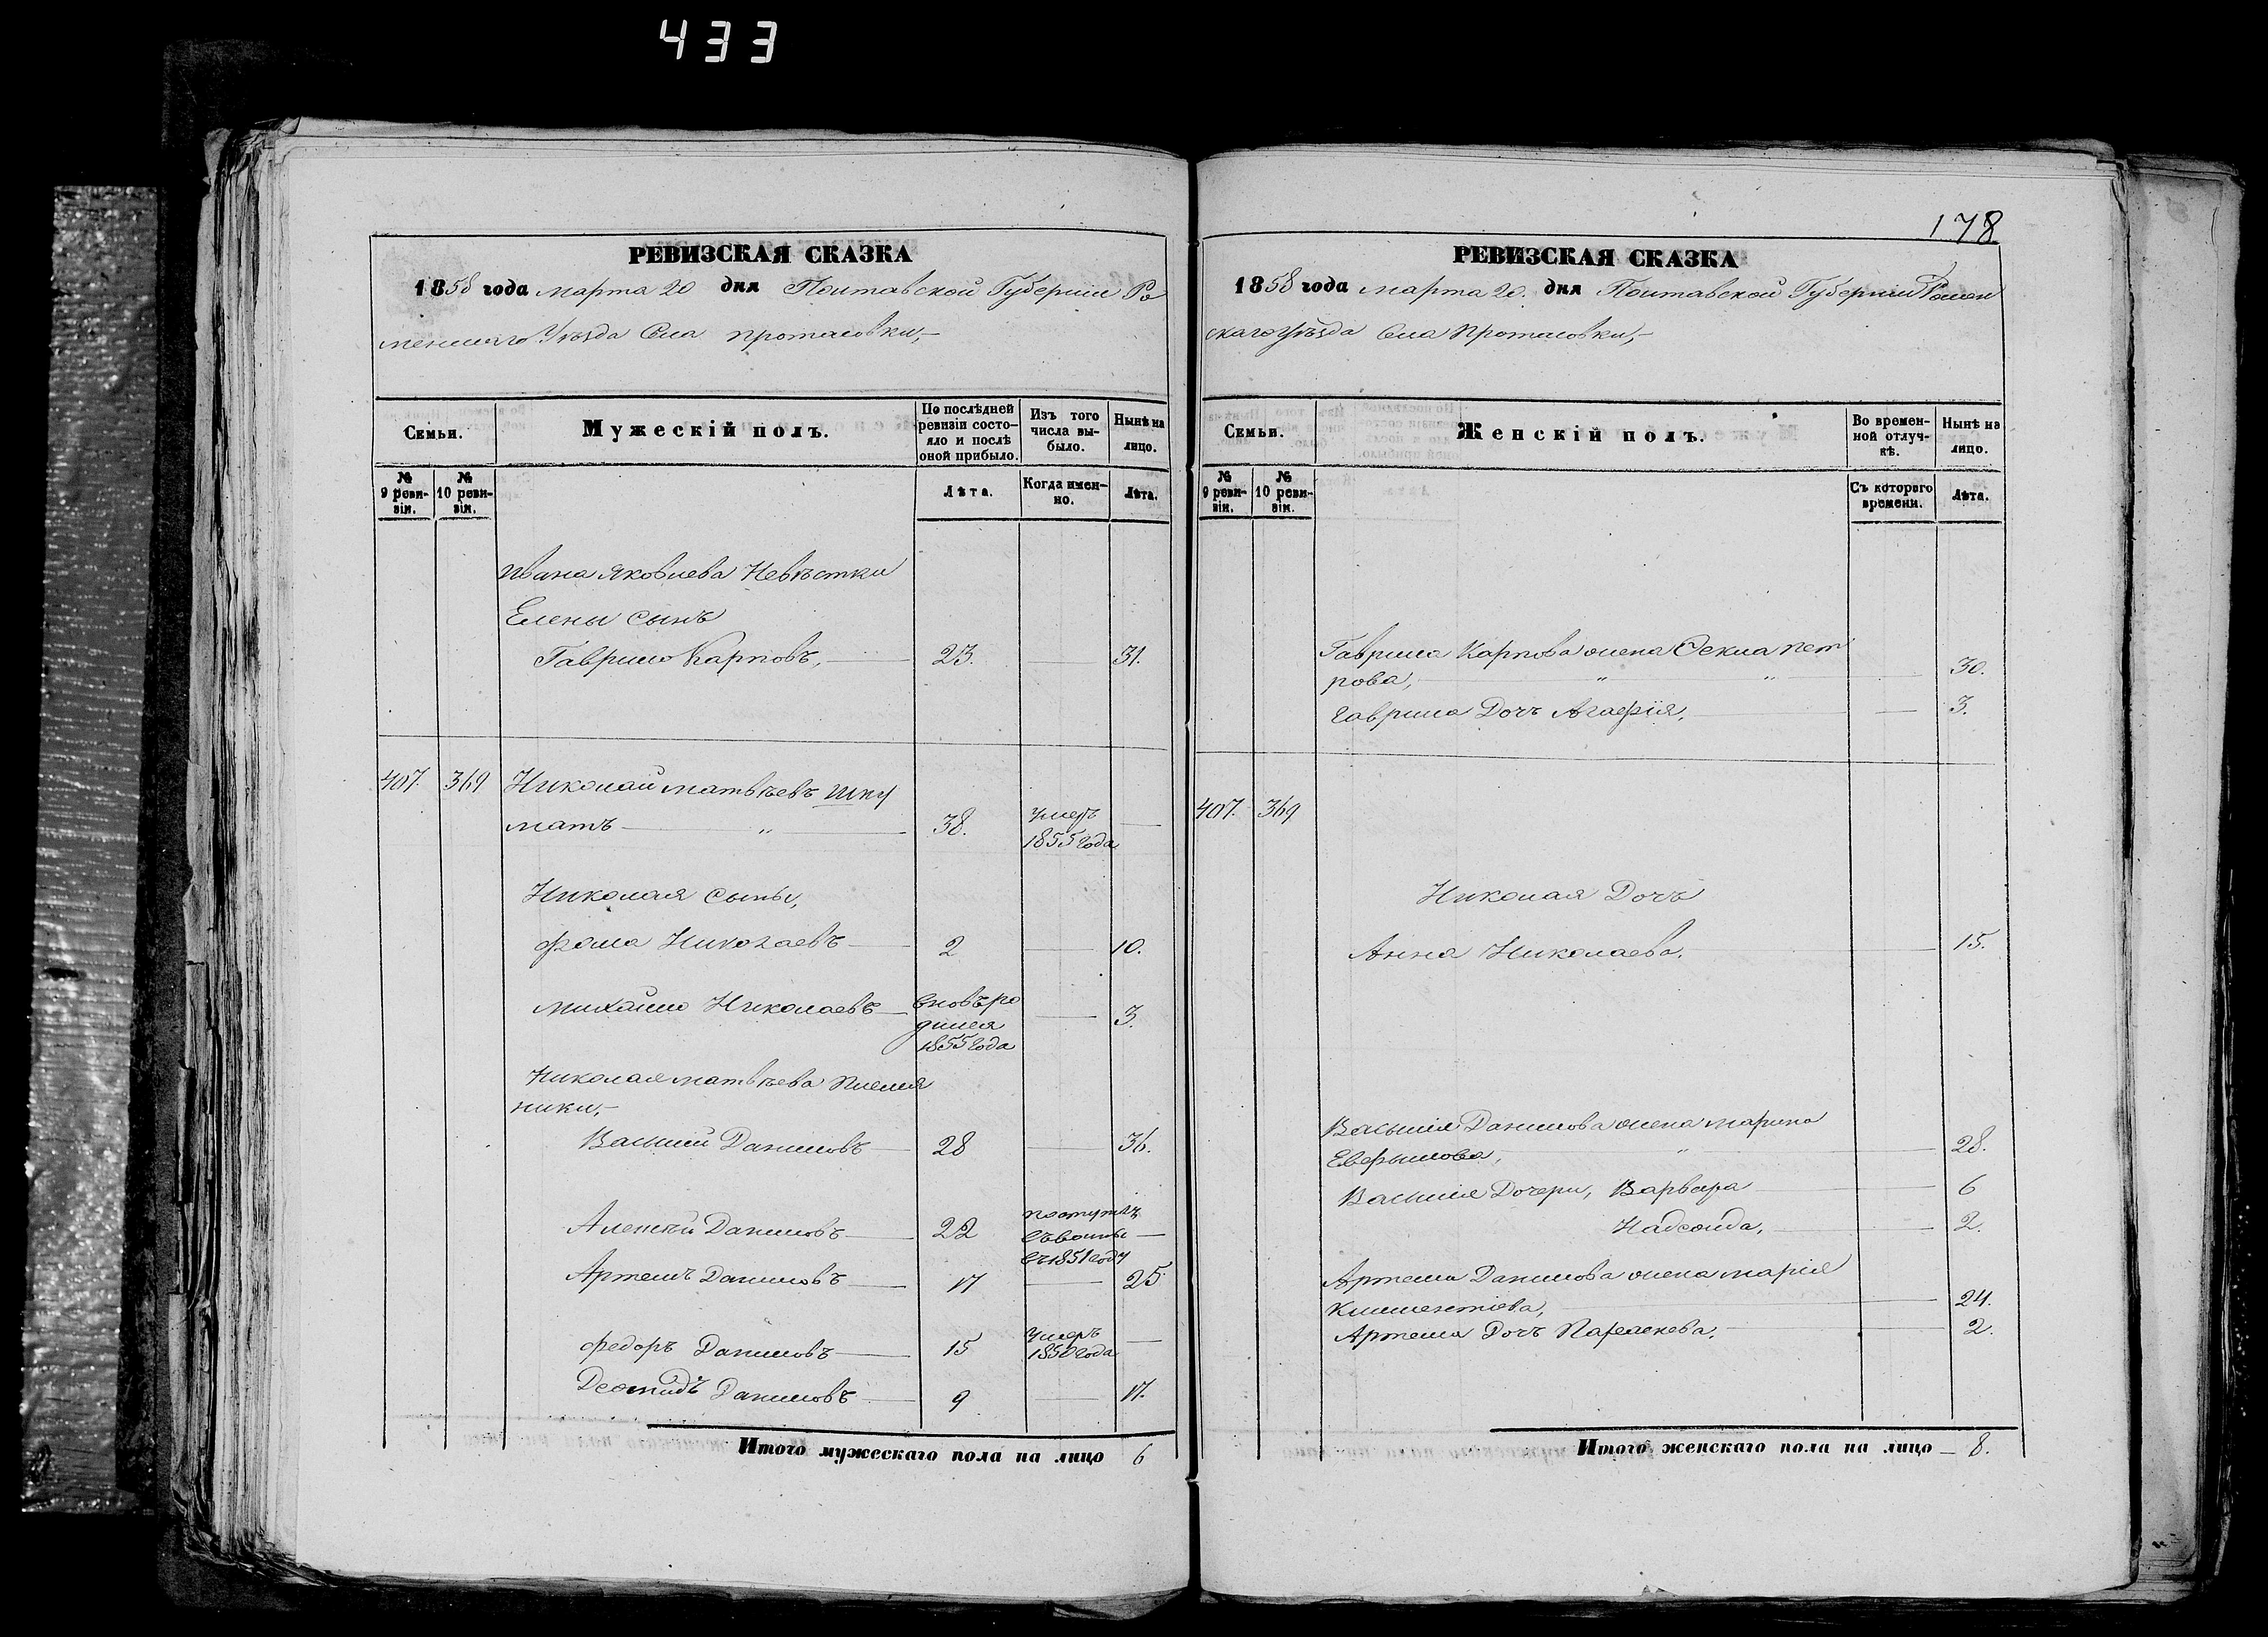 433
РЕВИЗСКАЯ СКАЗКА
1858 года марта 20 дня Полтавской Губернии Ро
менскаго Уѣзда Села Протасовки,-
Семьи.
Мужескій полъ.
По послѣдней ревизіи состо-
яло и послѣ оной прибыло.
Изъ того числа вы-
было.
Нынѣ на лицо.
№ 9 реви-
зіи.
№ 10 реви-
зіи.
Лѣта.
Когда имен-
но.
Лѣта.
Ивана Яковлева Невѣстки
Елены сынъ
Гаврило Карповъ, 23. 31.
407. 369 Николай Матвѣевъ Шку
матъ " 38. умеръ 1855 года
Николая сыны,
Фома Николаевъ 2 10.
Михайло Николаевъ вновь ро
дился
1855 года 3.
Николая Матвѣева Племя
ники,-
Василий Даниловъ 28 36.
Алексѣй Даниловъ 22 поступилъ
1851 году
Артемъ Даниловъ 17 25
Федоръ Даниловъ 15 умеръ
1850 года
Деомидъ Даниловъ 9 17.
Итого мужескаго пола на лицо 6
178
РЕВИЗСКАЯ СКАЗКА
1858 года марта 20. дня Полтавской Губернии Ромен
скаго Уѣзда Села Протасовки,-
Семьи.
Женскій полъ.
Во времен-
ной отлуч-
кѣ.
Нынѣ на лицо.
№ 9 реви-
зіи.
№ 10 реви-
зіи.
Съ котораго времени.
Лѣта.
Гаврила Карпова жена Фекла Пет
рова, " " 30.
Гаврила Дочь Агафія, 3.
407. 369
Николая Дочь
Анна Николаева, 15.
Василия Данилова жена Марина
" 28.
Василия Дочери, Варвара 6
2.
Артема Данилова жена Марія
Климентіева, 24.
Артема Дочь 2.
Итого женскаго пола на лицо 8.